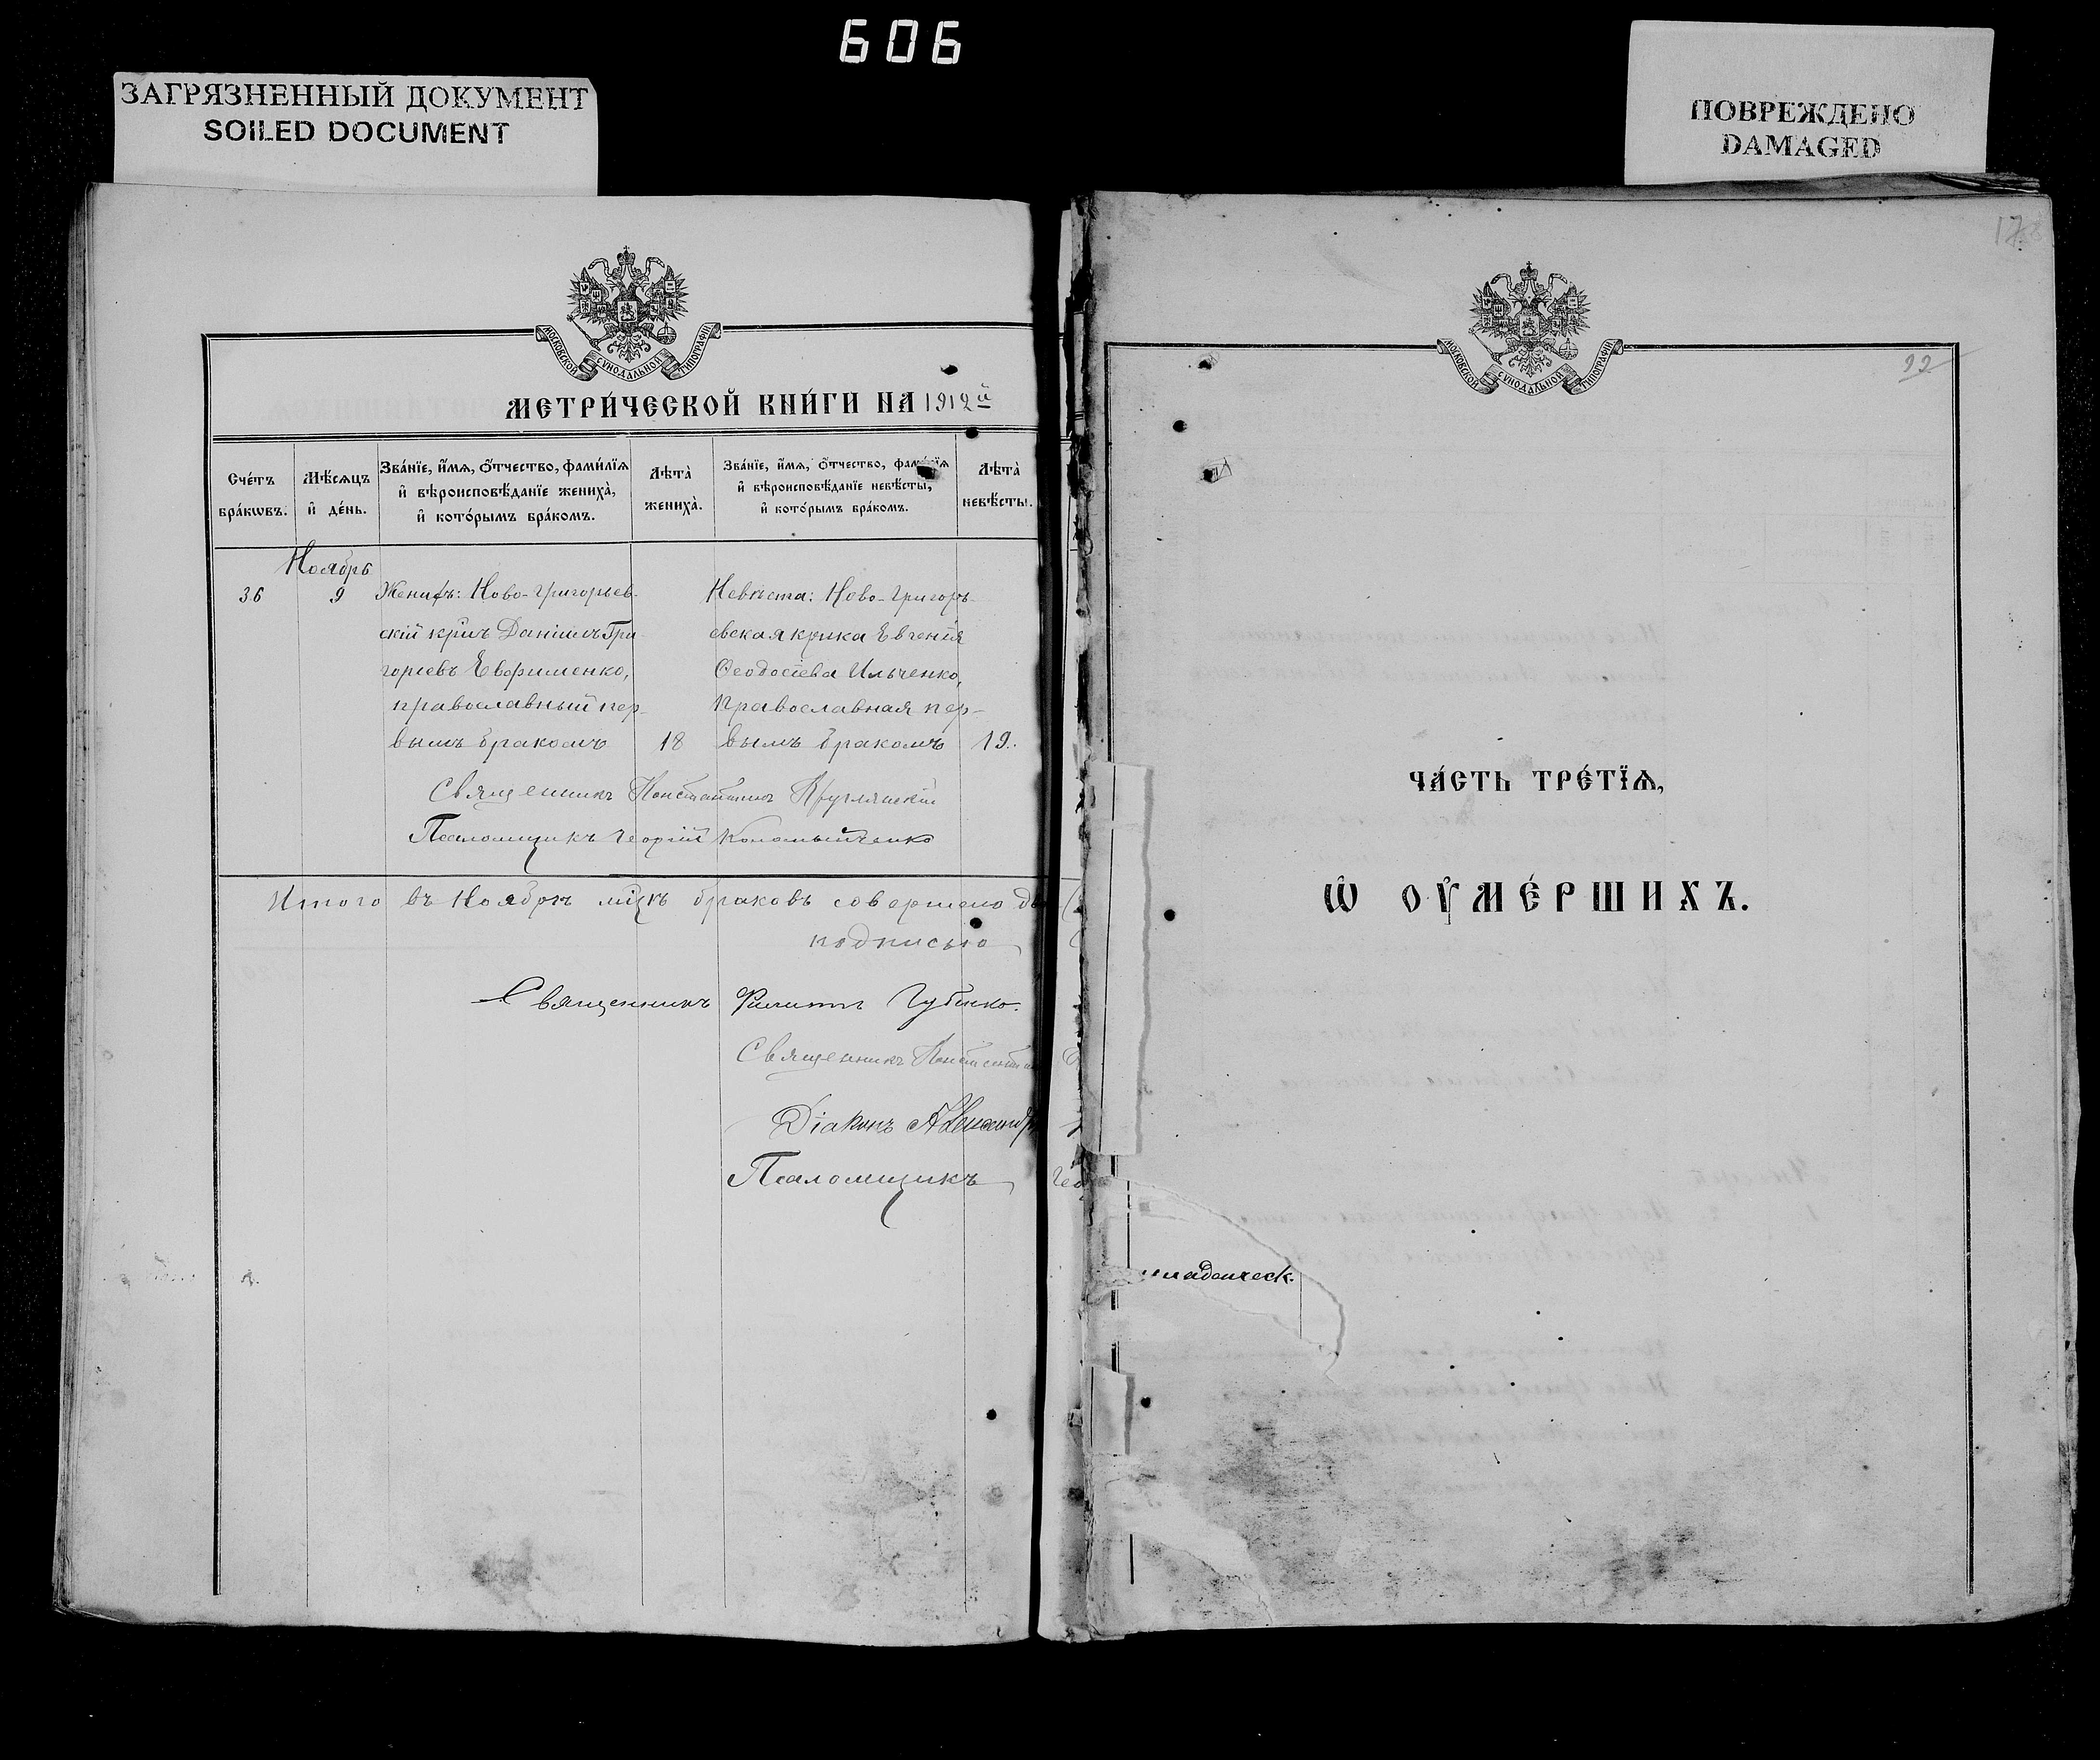 606
ЗАГРЯЗНЕННЫЙ ДОКУМЕНТ
SOILED DOCUMENT
ПОВРЕЖДЕНО
DAMAGED
МОСКОВСКОЙ СѴНОДАЛЬНОЙ ТИПОГРАФІИ
МЕТРИ́ЧЕСКОЙ КНИ́ГИ НА 1912 й
Сче́тъ бра́кѡвъ.
Мѣ́сѧцъ и҆ де́нь.
Зва́нїе, и҆́мѧ, о҆́тчество, фами́лїѧ и҆ вѣроисповѣ́данїе женихà, и҆ кото́рымъ бра́комъ.
Лѣтà женихà.
Зва́нїе, и҆́мѧ, о҆́тчество, фами́лїѧ и҆ вѣроисповѣ́данїе невѣ́сты, и҆ кото́рымъ бра́комъ.
Лѣтà невѣ́сты.
Ноябрь
36 9 Женихъ: Ново-Григорьев-
скій крнъ Даніилъ Гри-
горіевъ Евфименко,
православный пер-
вымъ бракомъ 18
Невѣста: Ново-Григорь-
евская крнка Евгенія
Ѳеодосіева Ильченко,
православная пер-
вымъ бракомъ 19.
Священникъ Константинъ
Псаломщикъ Георгій
Итого въ Ноябрѣ мцѣ браковъ совершено
подписью
Священникъ Филиппъ Губенко.
Священникъ
Діаконъ Александръ
Псаломщикъ
МОСКОВСКОЙ СѴНОДАЛЬНОЙ ТИПОГРАФІИ
22
ЧА́СТЬ ТРЕ́ТЇѦ,
Ѡ҆ ОУ҆МЕ́РШИХЪ.
младенческ.